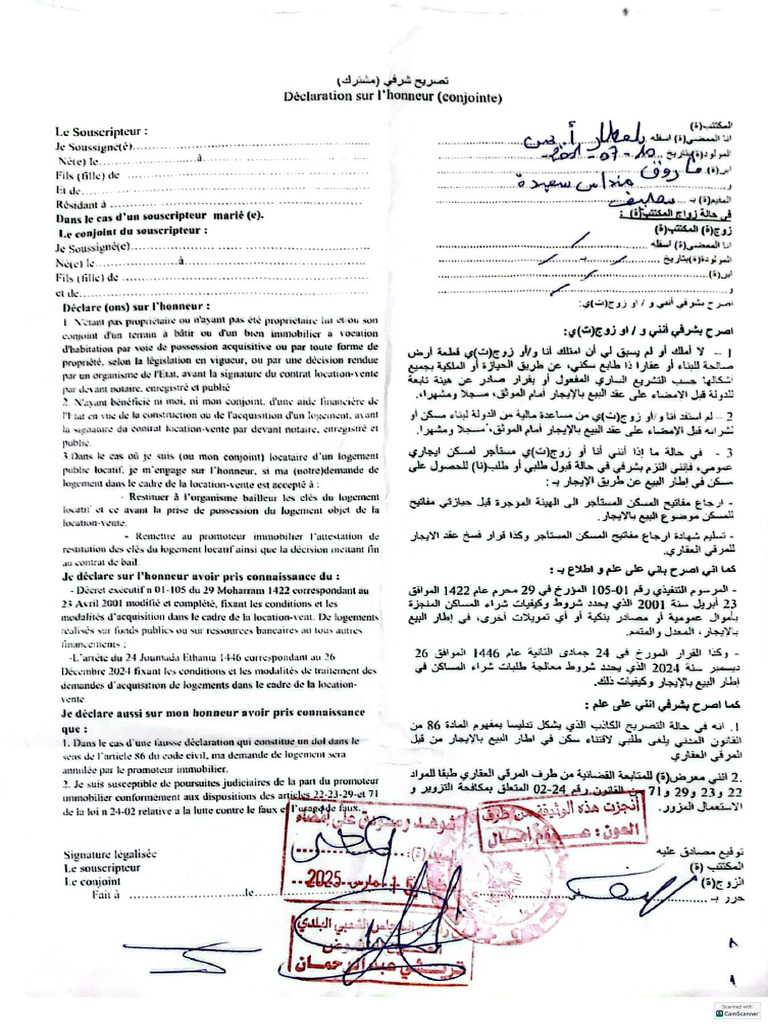 تصريح شرفي (مشترك)
Déclaration sur l'honneur (conjointe)
Le Souscripteur :
Je Soussigné(e)
Né(e) le à
Fils (fille) de
Et de
Résidant à
Dans le cas d'un souscripteur marié (e).
Le conjoint du souscripteur :
Je Soussigné(e)
Né(e) le à
Fils (fille) de
et de
Déclare (ons) sur l'honneur :
1. N'étant pas propriétaire ou n'ayant pas été propriétaire lui et ou son
conjoint d'un terrain à bâtir ou d'un bien immobilier à vocation
d'habitation par voie de possession acquisitive ou par toute forme de
propriété, selon la législation en vigueur, ou par une décision rendue
par un organisme de l'Etat, avant la signature du contrat location-vente
par devant notaire, enregistré et publié
2. N'ayant bénéficié ni moi, ni mon conjoint, d'une aide financière de
l'Etat en vue de la construction ou de l'acquisition d'un logement, avant
la signature du contrat location-vente par devant notaire, enregistré et
publié.
3.Dans le cas où je suis (ou mon conjoint) locataire d'un logement
public locatif, je m'engage sur l'honneur, si ma (notre)demande de
logement dans le cadre de la location-vente est accepté à :
- Restituer à l'organisme bailleur les clés du logement
locatif et ce avant la prise de possession du logement objet de la
location-vente.
- Remettre au promoteur immobilier l'attestation de
restitution des clés du logement locatif ainsi que la décision mettant fin
au contrat de bail.
Je déclare sur l'honneur avoir pris connaissance du :
- Décret exécutif n 01-105 du 29 Moharram 1422 correspondant au
23 Avril 2001 modifié et complété, fixant les conditions et les
modalités d'acquisition dans le cadre de la location-vent. De logements
réalisés sur fonds publics ou sur ressources bancaires au tous autres
financements ;
-L'arrête du 24 Joumada Ethania 1446 correspondant au 26
Décembre 2024 fixant les conditions et les modalités de traitement des
demandes d'acquisition de logements dans le cadre de la location-
vente.
Je déclare aussi sur mon honneur avoir pris connaissance
que :
1. Dans le cas d'une fausse déclaration qui constitue un dol dans le
sens de l'article 86 du code civil, ma demande de logement sera
annulée par le promoteur immobilier.
2. Je suis susceptible de poursuites judiciaires de la part du promoteur
immobilier conformément aux dispositions des articles 22-23-29-et 71
de la loi n 24-02 relative a la lutte contre le faux et l'usage de faux.
Signature légalisée
Le souscripteur
Le conjoint
Fait à le
المكتتب(ة)
انا الممضي(ة) اسفله
المولود(ة)بتاريخ 10-07-
ابن(ة) فاروق
و منداس سعيدة
المقيم(ة) بـ سطيف
في حالة زواج المكتتب(ة) :
زوج(ة) المكتتب(ة)
انا الممضي(ة) اسفله /
المولودة(ة)بتاريخ / - / - /
ابن(ة) /
و /
اصرح بشرفي أنني و / او زوج(ت)ي:
اصرح بشرفي أنني و / او زوج(ت)ي:
1 – لا أملك أو لم يسبق لي أن امتلك أنا و/او زوج(ت)ي قطعة أرض
صالحة للبناء أو عقارا ذا طابع سكني، عن طريق الحيازة أو الملكية بجميع
اشكالها حسب التشريع الساري المفعول أو بقرار صادر عن هيئة تابعة
للدولة قبل الامضاء على عقد البيع بالإيجار أمام الموثق، مسجلا ومشهرا.
2 – لم استفد أنا و/او زوج(ت)ي من مساعدة مالية من الدولة لبناء مسكن أو
لشرائه قبل الإمضاء على عقد البيع بالإيجار أمام الموثق، مسجلا ومشهرا.
3 – في حالة ما إذا أنني أنا أو زوج(ت)ي مستأجر لمسكن ايجاري
عمومي، فإنني التزم بشرفي في حالة قبول طلبي أو طلب(نا) للحصول على
سكن في إطار البيع عن طريق الإيجار بـ :
- ارجاع مفاتيح المسكن المستأجر الى الهيئة المؤجرة قبل حيازتي مفاتيح
للمسكن موضوع البيع بالايجار.
- تسليم شهادة ارجاع مفاتيح المسكن المستأجر وكذا قرار فسخ عقد الايجار
للمرقي العقاري.
كما اني اصرح باني على علم و اطلاع بـ :
- المرسوم التنفيذي رقم 01-105 المؤرخ في 29 محرم عام 1422 الموافق
23 أبريل سنة 2001 الذي يحدد شروط وكيفيات شراء المساكن المنجزة
بأموال عمومية أو مصادر بنكية أو أي تمويلات أخرى، في إطار البيع
بالايجار، المعدل و المتمم.
- وكذا القرار المورخ في 24 جمادى الثانية عام 1446 الموافق 26
ديسمبر سنة 2024 الذي يحدد شروط معالجة طلبات شراء المساكن في
إطار البيع بالإيجار وكيفيات ذلك.
كما اصرح بشرفي انني على علم :
1. انه في حالة التصريح الكاذب الذي يشكل تدليسا بمفهوم المادة 86 من
القانون المدني يلغى طلبي لاقتناء سكن في اطار البيع بالإيجار من قبل
المرقي العقاري
2. انني معرض(ة) للمتابعة القضائية من طرف المرقي العقاري طبقا للمواد
22 و 23 و 29 و 71 من القانون رقم 24-02 المتعلق بمكافحة التزوير و
الاستعمال المزور.
توقيع مصادق عليه
المكتتب (ة)
الزوج(ة)
حرر بـ في
شوهد ومصودق على إمضاء
السيد(ة)
15 مارس 2025
أنجزت هذه الوثيقة من طرف
العون :
رئيس المجلس الشعبي البلدي
Scanned with
CamScanner